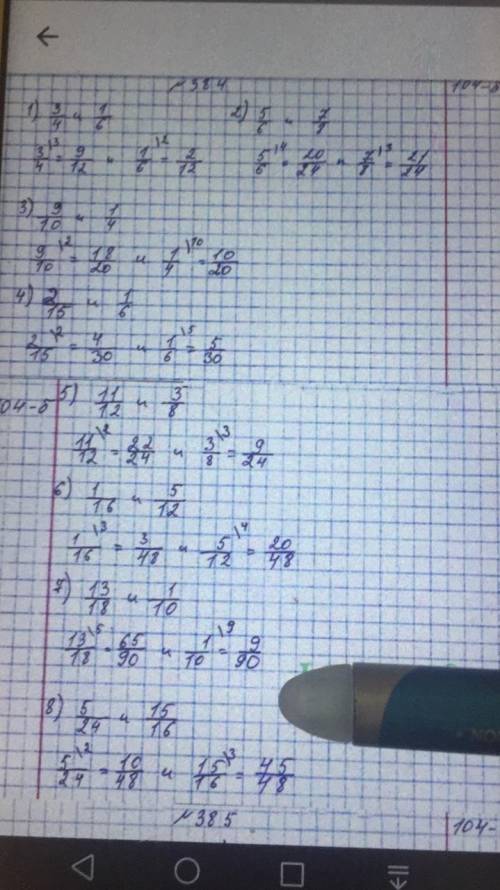 №384
104-б
1) 3/4 и 1/6 2) 5/6 и 7/8
3/4 \3 = 9/12 и 1/6 \2 = 2/12 5/6 \4 = 20/24 и 7/8 \3 = 21/24
3) 9/10 и 1/4
9/10 \2 = 18/20 и 1/4 \10 = 10/20
4) 2/15 и 1/6
2/15 \2 = 4/30 и 1/6 \5 = 5/30
104-б
5) 11/12 и 3/8
11/12 \2 = 22/24 и 3/8 \3 = 9/24
6) 1/16 и 5/12
1/16 \3 = 3/48 и 5/12 \4 = 20/48
7) 13/18 и 1/10
13/18 \5 = 65/90 и 1/10 \9 = 9/90
8) 5/24 и 15/16
5/24 \2 = 10/48 и 15/16 \3 = 45/48
№385
104-